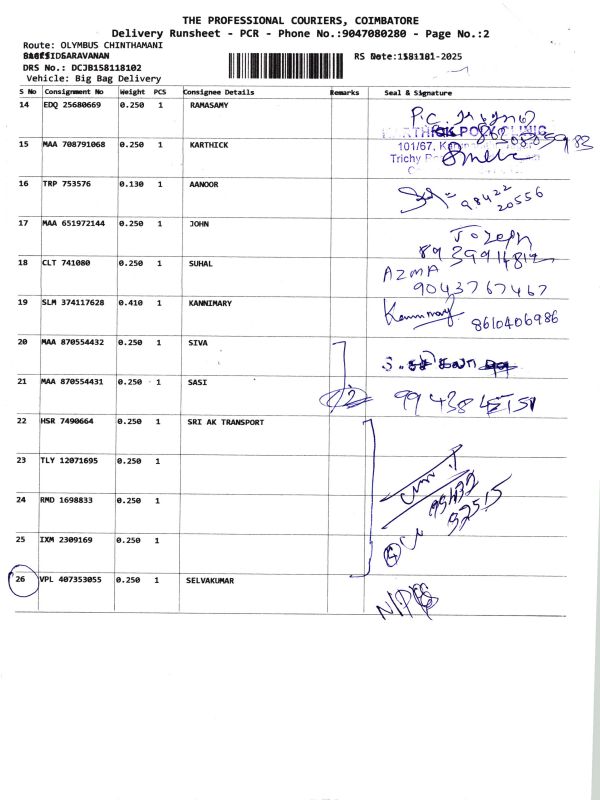 THE PROFESSIONAL COURIERS, COIMBATORE
Delivery Runsheet - PCR - Phone No.:9047080280 - Page No.:2
Route: OLYMBUS CHINTHAMANI
SARAVANAN
RS Date:
-2025
DRS No.: DCJB158118102
Vehicle: Big Bag Delivery
S No Consignment No Weight PCS Consignee Details Remarks Seal & Signature
14 EDQ 25680669 0.250 1 RAMASAMY
P.C.
15 MAA 708791068 0.250 1 KARTHICK
101/67,
Trichy
16 TRP 753576 0.130 1 AANOOR
98422
20556
17 MAA 651972144 0.250 1 JOHN
Joseph
18 CLT 741080 0.250 1 SUHAL
AZMA
9043767467
19 SLM 374117628 0.410 1 KANNIMARY
Kannimary 8610406986
20 MAA 870554432 0.250 1 SIVA
21 MAA 870554431 0.250 1 SASI
2
22 HSR 7490664 0.250 1 SRI AK TRANSPORT
23 TLY 12071695 0.250 1
24 RMD 1698833 0.250 1
25 IXM 2309169 0.250 1
4
26 VPL 407353055 0.250 1 SELVAKUMAR